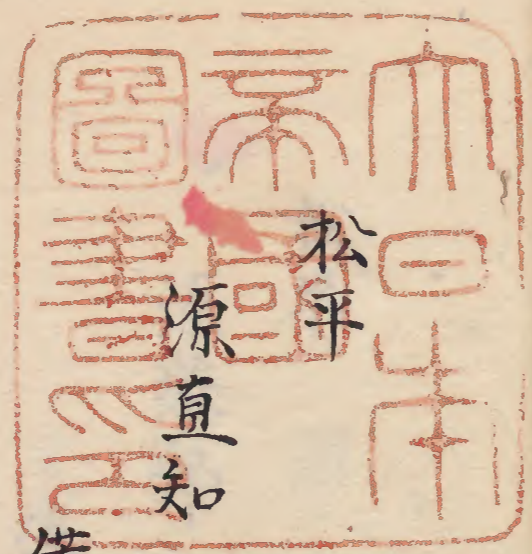 大日本
帝國
圖書印
松平
源直知